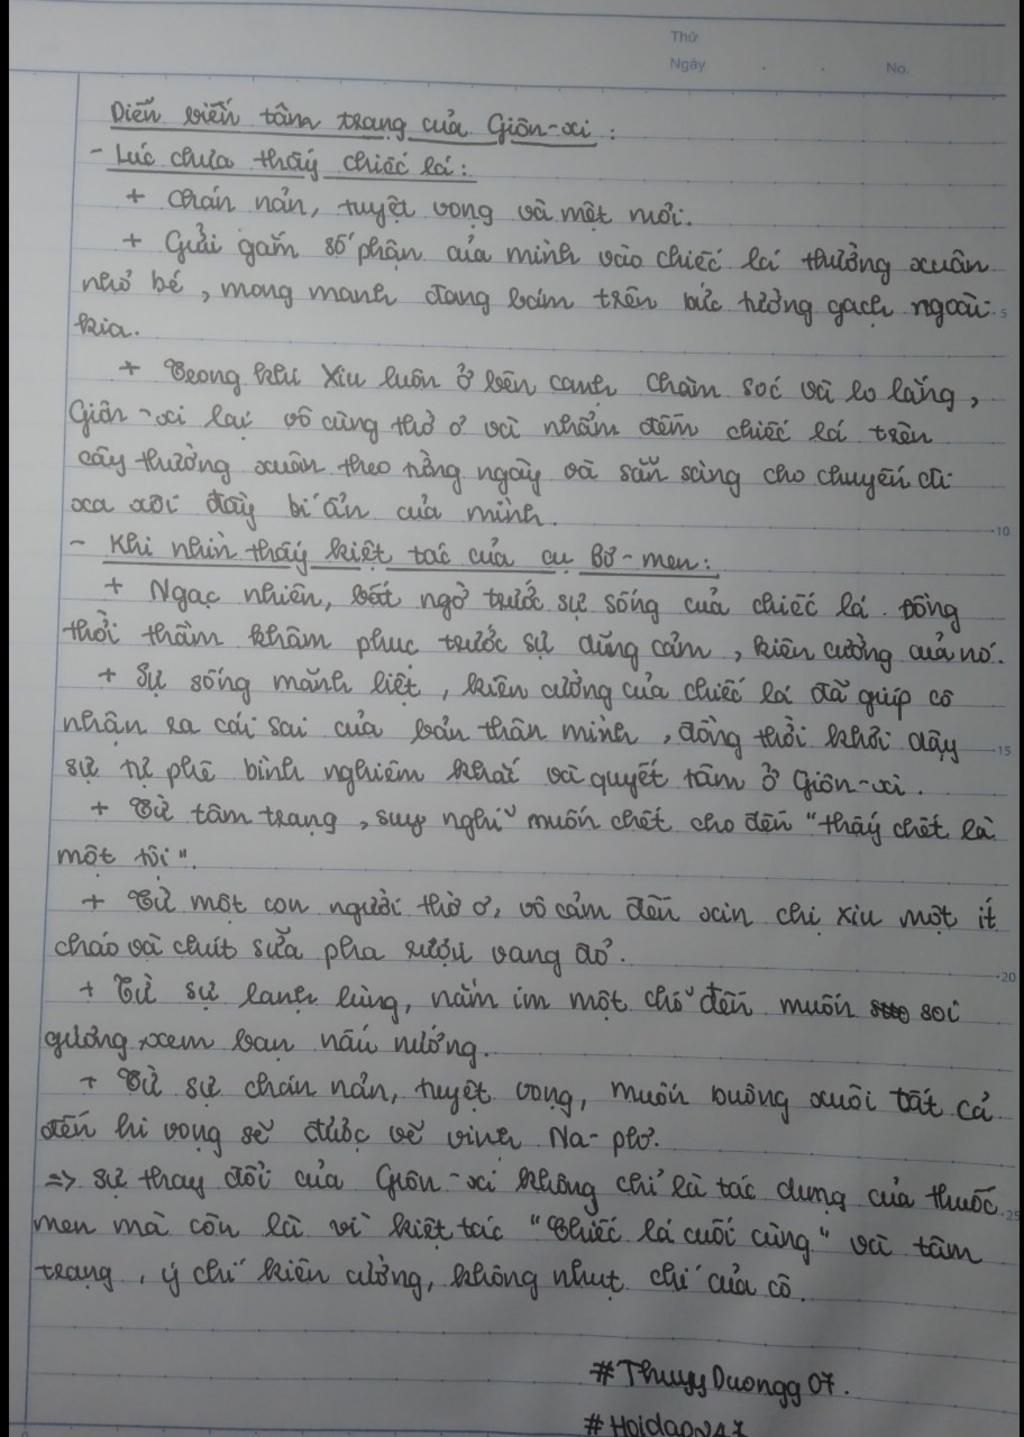 Thứ
Ngày . . No.
Diễn biến tâm trạng của Giôn-xi :
- Lúc chưa thấy chiếc lá :
+ Chán nản, tuyệt vọng và mệt mỏi.
+ Gửi gắm số phận của mình vào chiếc lá thường xuân
nhỏ bé, mong manh đang bám trên bức tường gạch ngoài 5
kia.
+ Trong khi Xiu luôn ở bên cạnh chăm sóc và lo lắng,
Giôn-xi lại vô cùng thờ ơ và nhẩm đếm chiếc lá trên
cây thường xuân theo từng ngày và sẵn sàng cho chuyến đi
xa xôi đầy bí ẩn của mình. 10
- Khi nhìn thấy kiệt tác của cụ Bơ-men :
+ Ngạc nhiên, bất ngờ trước sự sống của chiếc lá. Đồng
thời thầm khâm phục trước sự dũng cảm, kiên cường của nó.
+ Sự sống mãnh liệt, kiên cường của chiếc lá đã giúp cô
nhận ra cái sai của bản thân mình, đồng thời khơi dậy 15
sự tự phê bình nghiêm khắc và quyết tâm ở Giôn-xi.
+ Từ tâm trạng, suy nghĩ muốn chết cho đến "thấy chết là
một tội".
+ Từ một con người thờ ơ, vô cảm đến xin chị Xiu một ít
cháo và chút sữa pha rượu vang đỏ. 20
+ Từ sự lạnh lùng, nằm im một chỗ đến muốn soi
gương, xem bạn nấu nướng.
+ Từ sự chán nản, tuyệt vọng, muốn buông xuôi tất cả
đến hi vọng sẽ được vẽ vịnh Na-plơ.
=> Sự thay đổi của Giôn-xi không chỉ là tác dụng của thuốc 25
men mà còn là vì kiệt tác "Chiếc lá cuối cùng" và tâm
trạng, ý chí kiên cường, không nhụt chí của cô.
#ThuyyDuongg07.
#Hoidap247